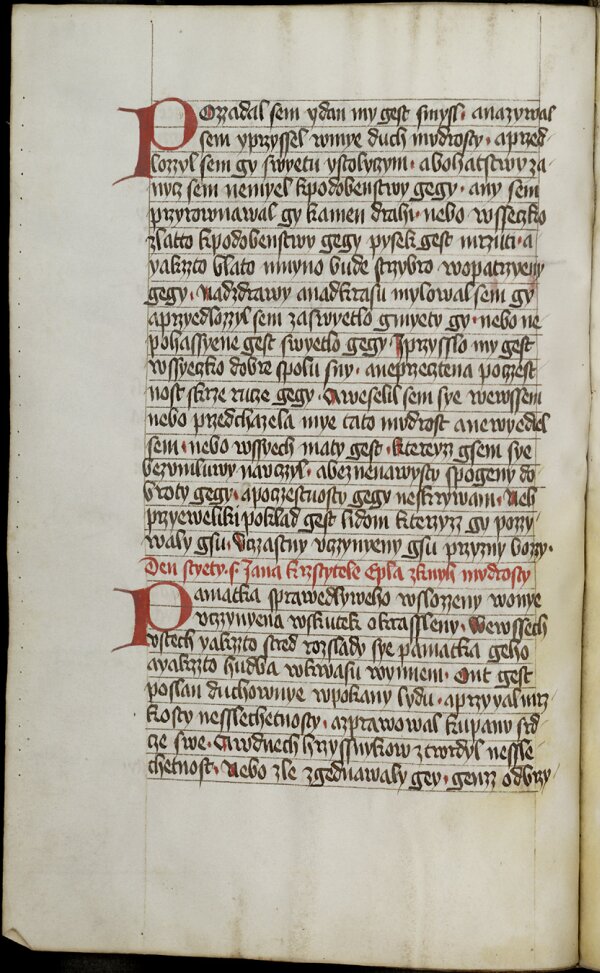 Pozzadal sem ydan my gest smysl · anazywal
sem yprzyssel wmye duch mudrosty · aprzed-
lozzyl sem gy swyetu ystolyczym · abohatstwy za
nycz sem nemyel kpodobenstwy gegy · any sem
przyrownawal gy kamen drahi · nebo wsseczko
zlatto kpodobenstwy gegy pysek gest mrzuti · a
yakzto blato mnyno bude strzybro wopatrzyeny
gegy · Nadzdrawy anadkrasu mylowal sem gy
aprzyedlozzyl sem zaswyetlo gmyety gy · nebo ne
pohassyene gest swyetlo gegy · Iprzysslo my gest
wssyeczko dobre spolu sny · aneprzectena poczest
nost skrze rucze gegy · Aweselil sem sye wewssem
nebo przedchazela mye tato mudrost anewyedel
sem · nebo wssyech maty gest · kterezz gsem sye
bezymluwy nauczyl · abeznenawysty spogeny do
broty gegy · apoczestnosty gegy neskrywam · Neb
przyeweliki poklad gest lidom kterzyzz gy pozzy
waly gsu · Vczastny vczynyeny gsu przyzny bozzy ·
Den styety · s · Jana krzstytele Epla zknyh mudrosty
Pamatka sprawedlyweho wslozzeny wonye
vczynyena wskutek okrassleny · Wewssech
vstech yakzto stred rozslady sye pamatka geho
ayakzto hudba wkwasu wynnem · Ont gest
poslan duchownye wpokany lydu · aprzyyal mrz
kosty nesslechetnosty · azprawowal kupanu srd
cze swe · Awdnech hrzyssnykow ztwrdyl nessle
chetnost · Nebo zle zgednawaly gey · genzz odbrzy